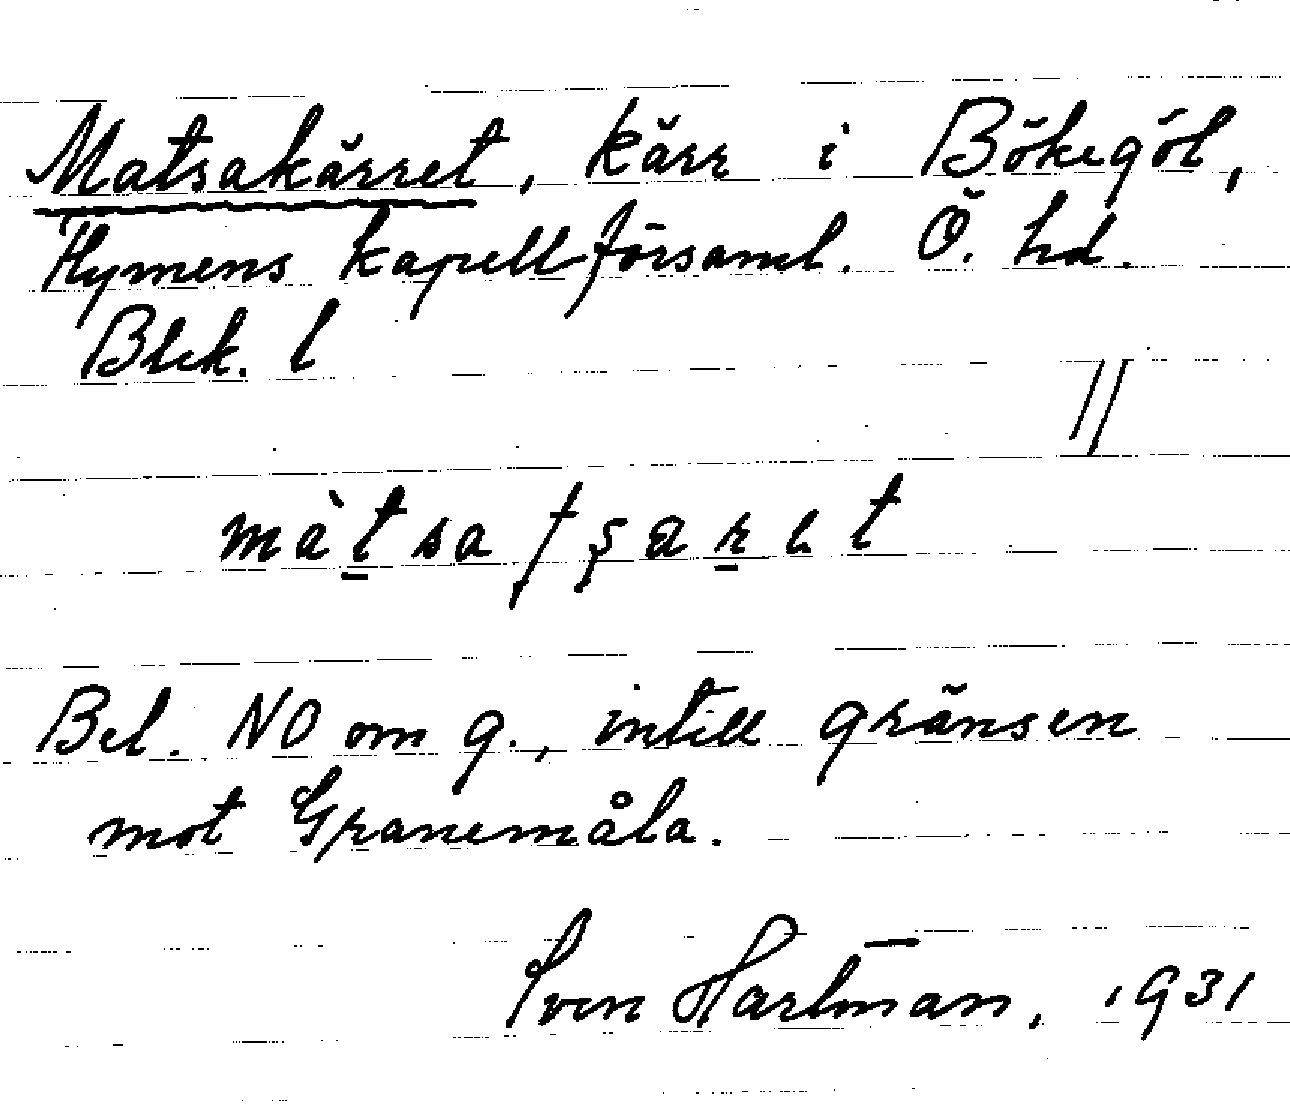 Matsakärret, kärr i Bökegöl,
Hymens kapellförsaml. Ö. hd.
Blek. l
//
màt̲sa ɟʂar̲et
Bel. NO om g., intill gränsen
mot Granemåla.
Sven Hartman, 1931